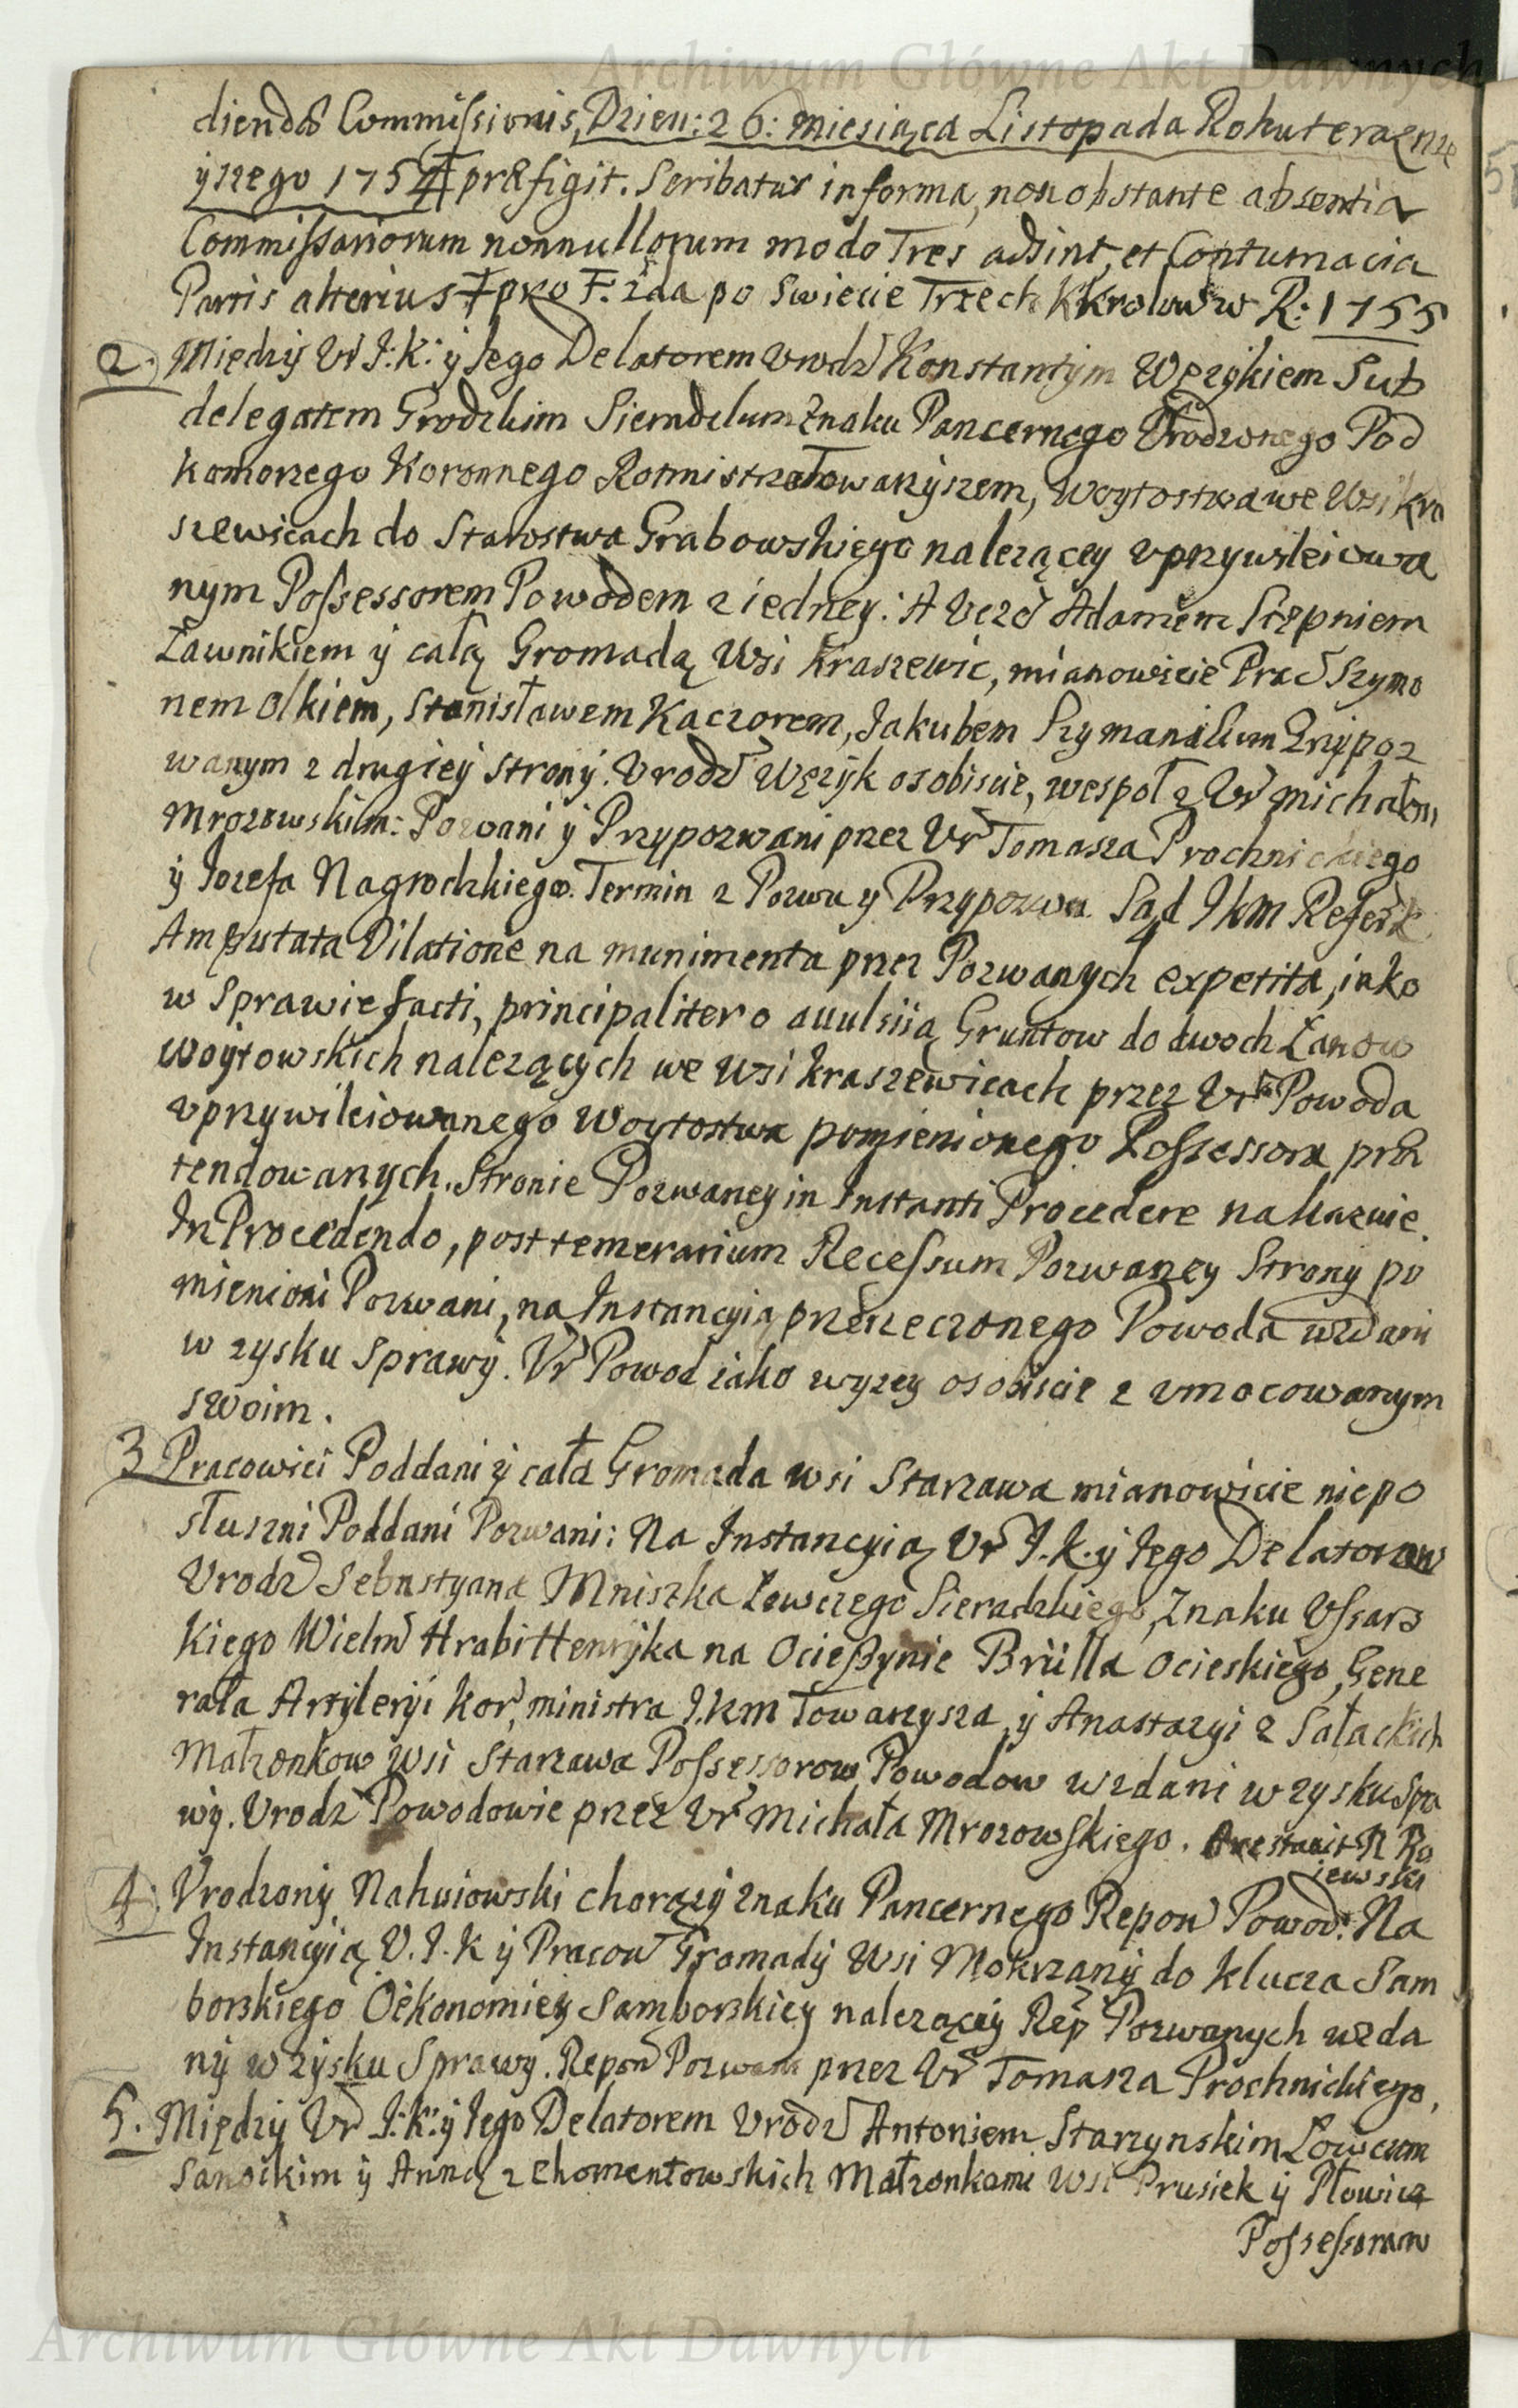 Archiwum Główne Akt Dawnych
diendæ Commissionis, Dzien: 26: Miesiąca Listopada Roku teraznie
yszego 1754 præfigit. Scribatur in forma, non obstante absentia
Commissariorum nonnullorum modo Tres adsint, et Contumacia
Partis alterius pro F. 2da po Swiecie Trzech Krolow w R: 1755
2. Między Ur J: K: y Jego Delatorem Urodz Konstantym Węzykiem Sub
delegatem Grodzkim Sieradzkim Znaku Pancernego Urodzonego Pod
komorzego Koronnego Rotmistrza Towarzyszem, Woytostwa we Wsi Kra
szewicach do Starostwa Grabowskiego nalezącey uprzywileiowa
nym Possessorem Powodem z iedney: A Ucző Adamem Stępniem
Ławnikiem y całą Gromadą Wsi Kraszewic, mianowicie Prac Szymo
nem Olkiem, Stanisławem Kaczorem, Jakubem Szymanskim Przypoz
wanym z drugiey strony. Urodz Węzyk osobiscie, wespoł z Ur Michałem
Mrozowskim: Pozwani y Przypozwani przez Ur Tomasza Prochnickiego
y Jozefa Nagrodzkiego. Termin z Pozwu y Przypozwu. Sąd JKM Referk
Amputata Dilatione na munimenta przez Pozwanych expetita, iako
w Sprawie facti, principaliter o avulsiią Gruntow do dwoch Łanow
Woytowskich nalezących we Wsi Kraszewicach przez Ur Powoda
uprzywileiowanego Woytostwa pomienionego Possessora præ
tendowanych. Stronie Pozwaney in Instanti Procedere nakazuie.
In Procedendo, post temerarium Recessum Pozwaney Strony po
mienioni Pozwani, na Instancyią przerzeczonego Powoda wzdani
w zysku Sprawy. Ur Powod iako wyzey osobiscie z umocowanym
swoim.
3 Pracowici Poddani y cała Gromada wsi Starzawa mianowicie niepo
słuszni Poddani Pozwani: Na Instancyią Ur J. K. y Jego Delatorow
Urodz Sebastyana Mniszka Łowczego Sieradzkiego, Znaku Ussars
kiego Wielm Hrabi Henryka na Ocieszynie Brülla Ocieskiego, Gene
rała Artyleryi Kor, Ministra J.K.M Towarzysza, y Anastazyi z Sałackich
Małzonkow wsi Starzawa Possessorow Powodow wzdani w zysku Spra
wy. Urodz Powodowie przez Ur Michała Mrozowskiego. Arestavit R Ro
iewski
4. Urodzony Nahuiowski chorązy znaku Pancernego Repon Powod: Na
Instancyią U. J. K y Pracow Gromady Wsi Mokrzany do Klucza Sam
borskiego Oekonomiey Samborskiey nalezącey Rep Pozwanych wzda
ny w zysku Sprawy. Repon Pozwani przez Ur Tomasza Prochnickiego,
5. Między Ur J: K: y Jego Delatorem Urodz Antoniem Starzynskim Łowczem
Sanockim y Anną z Chomentowskich Małzonkami Wsi Prusiek y Płowicz
Possessoram
Archiwum Główne Akt Dawnych